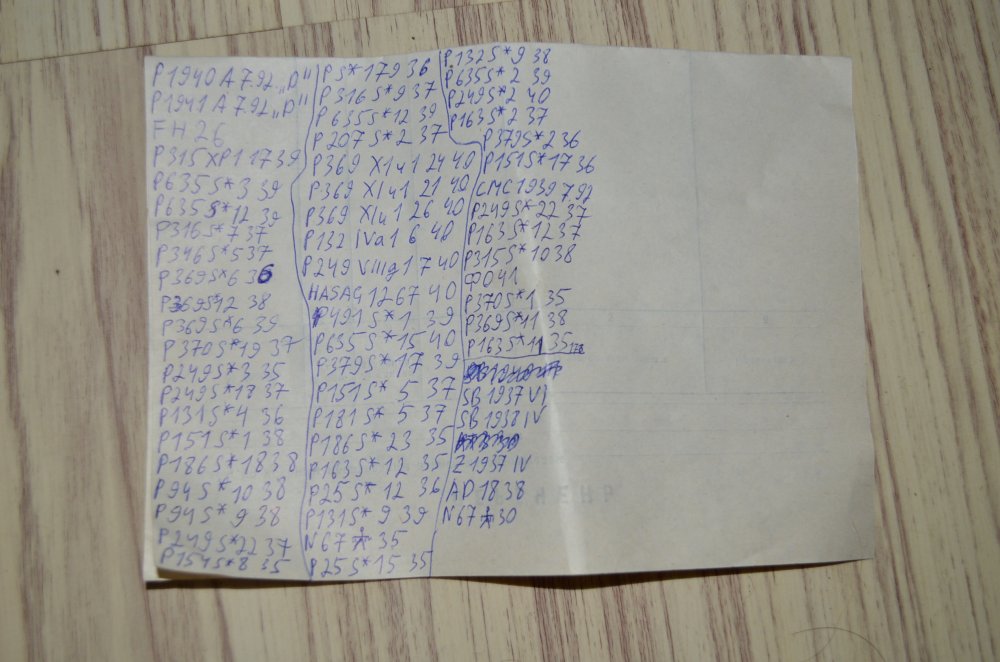 P1940 A 7.92 „D"
P1941 A 7.92 „D"
FH 26
P315 XP1 17 39
P635 S* 3 39
P635 S* 12 39
P316 S* 7 37
P346 S* 5 37
P369 S* 6 36
P369 S* 12 38
P369 S* 6 39
P370 S* 19 37
P249 S* 3 35
P249 S* 18 37
P131 S* 4 36
P151 S* 1 38
P186 S* 18 38
P94 S* 10 38
P94 S* 9 38
P249 S* 22 37
P154 S* 8 35
P S* 179 36
P316 S* 9 37
P635 S* 12 39
P207 S* 2 37
P369 XIu1 24 40
P369 XIu1 21 40
P369 XIu1 26 40
P132 IVa1 6 40
P249 VIIIg1 7 40
HASAG 12 67 40
P491 S* 1 39
P635 S* 15 40
P379 S* 17 39
P151 S* 5 37
P181 S* 5 37
P186 S* 23 35
P163 S* 12 35
P25 S* 12 36
P131 S* 9 39
N 67 35
P25 S* 15 35
P132 S* 9 38
P635 S* 2 39
P249 S* 2 40
P163 S* 2 37
P379 S* 2 36
P151 S* 17 36
CMC 1939 792
P249 S* 22 37
P163 S* 12 37
P315 S* 10 38
ФО 41
P370 S* 1 35
P369 S* 11 38
P163 S* 11 35 178
SB 1937 VI
SB 1938 IV
Z 1937 IV
AD 18 38
N 67 30